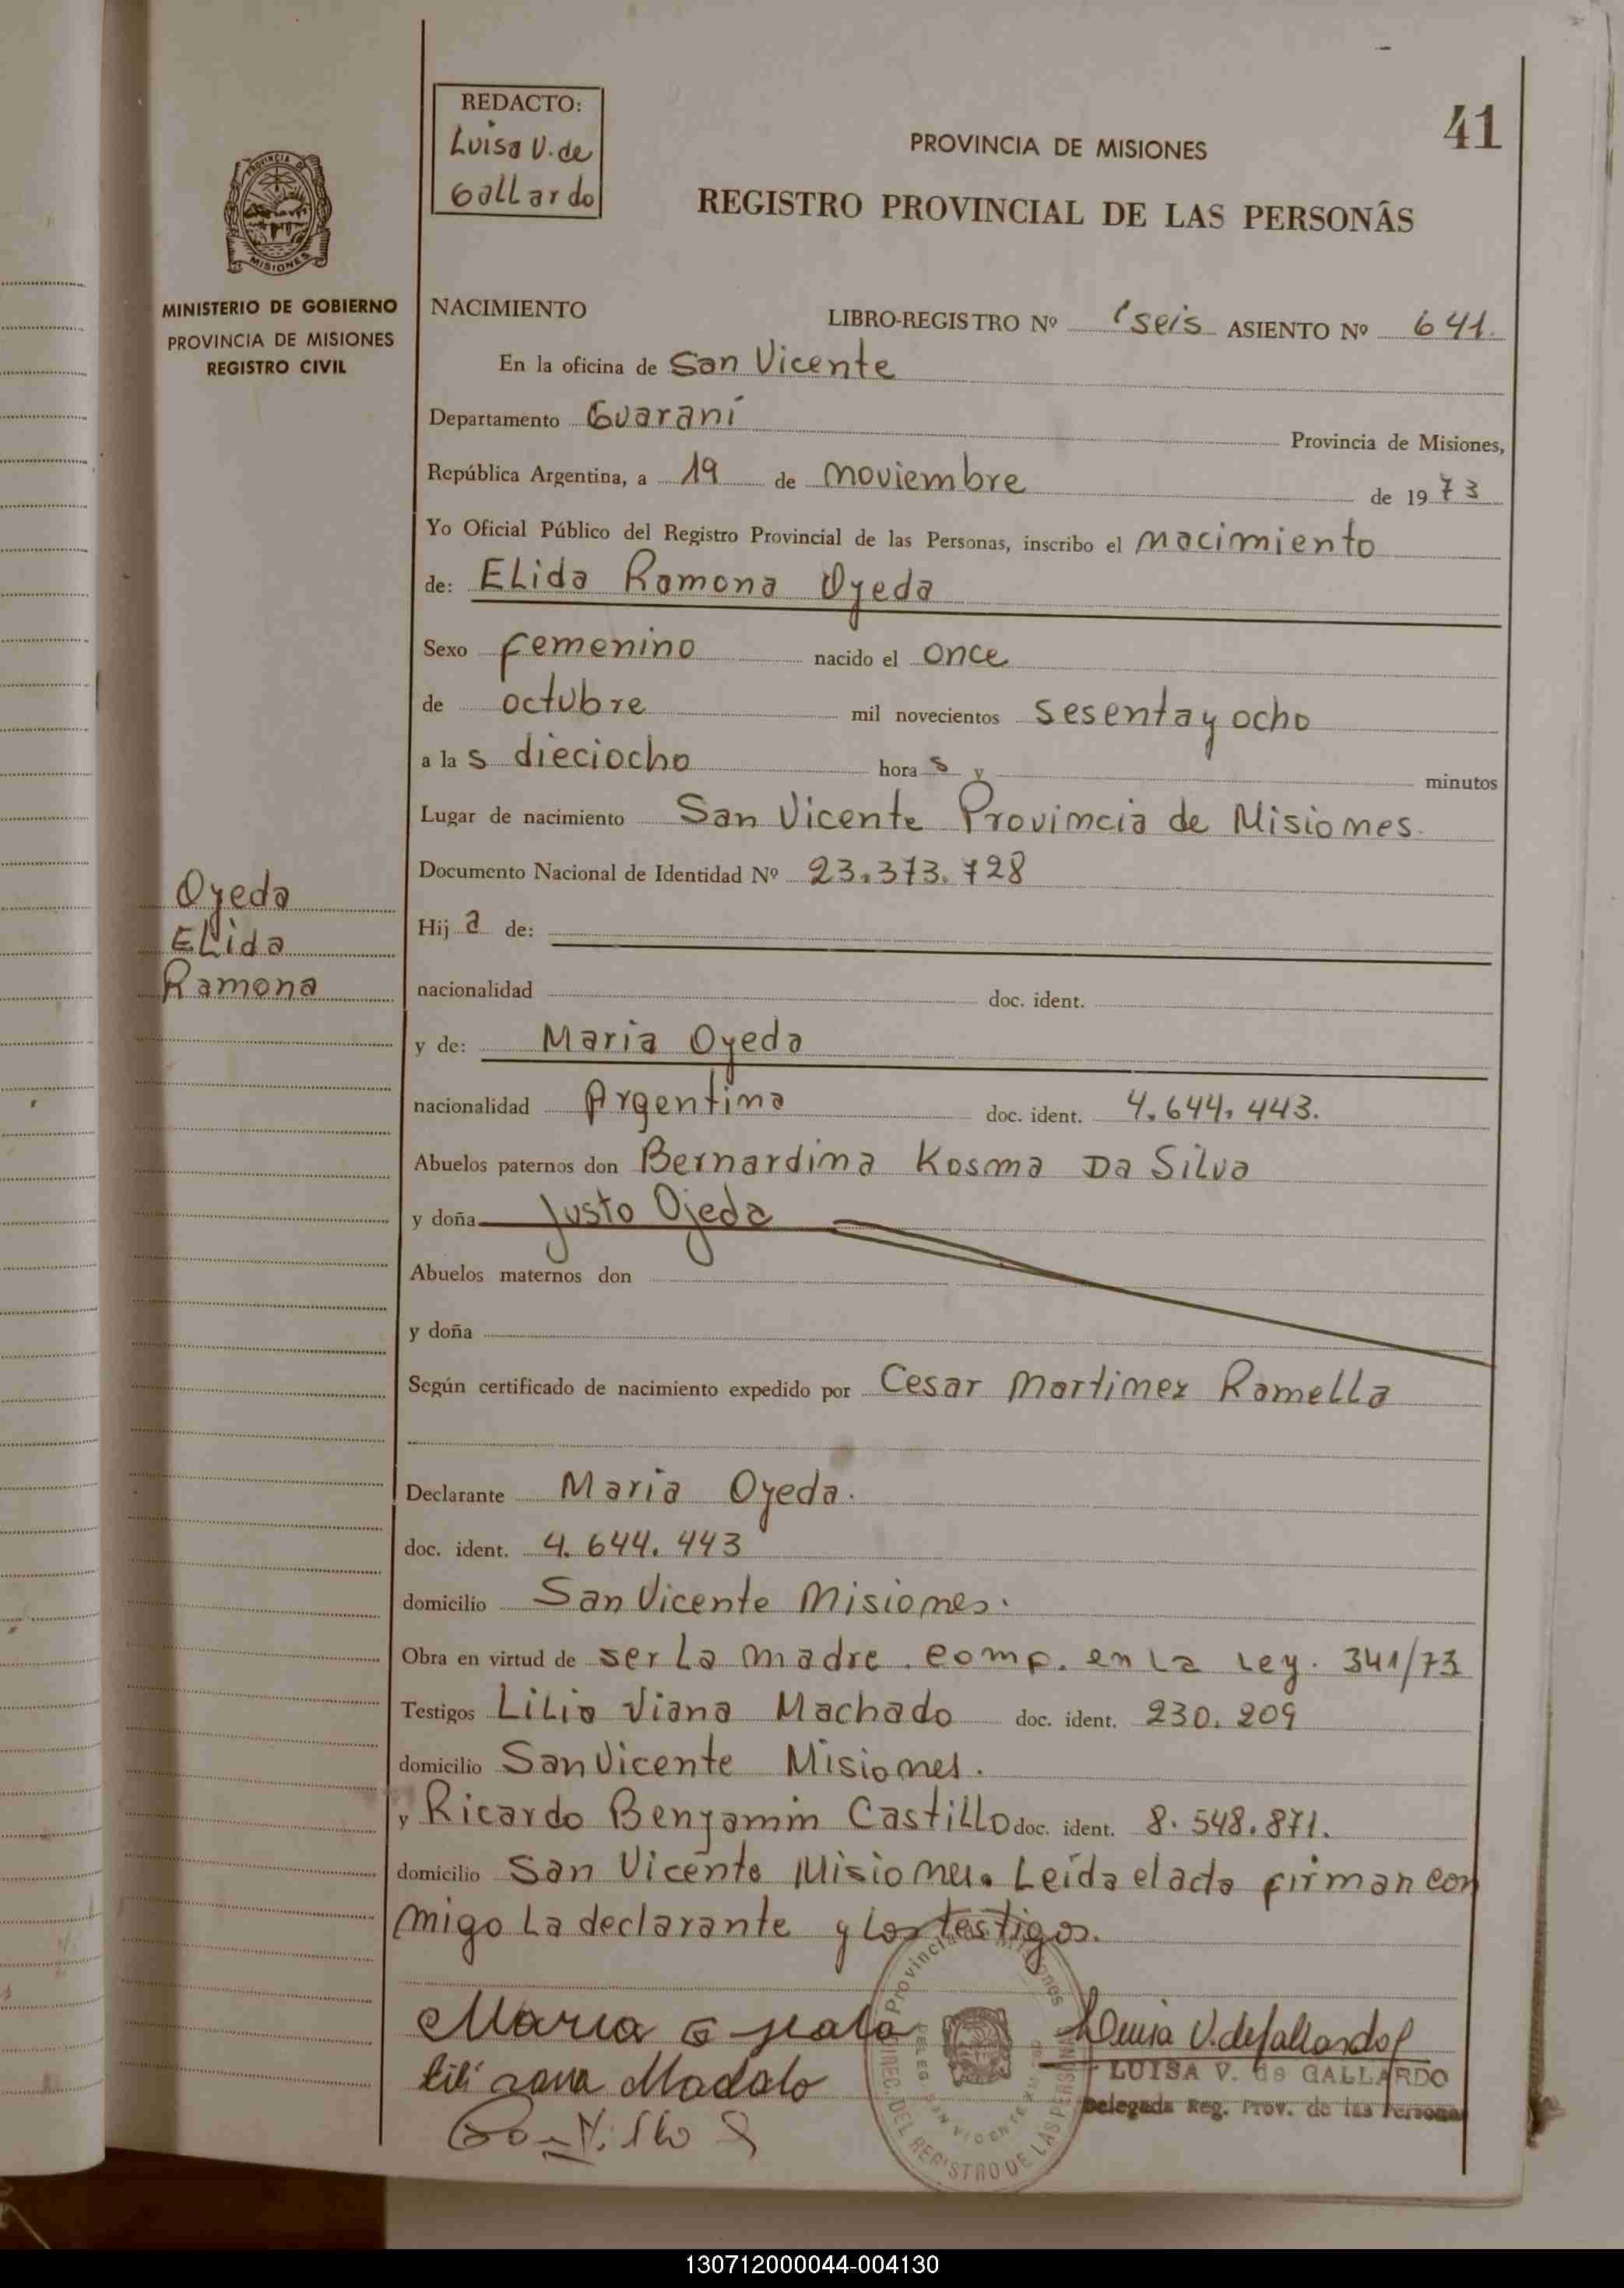 41
REDACTO:
Luisa V. de
Gallardo
PROVINCIA DE MISIONES
REGISTRO PROVINCIAL DE LAS PERSONÂS
PROVINCIA DE
MISIONES
MINISTERIO DE GOBIERNO
PROVINCIA DE MISIONES
REGISTRO CIVIL
NACIMIENTO
LIBRO-REGISTRO Nº seis ASIENTO Nº 641.
En la oficina de San Vicente
Departamento Guaraní Provincia de Misiones,
República Argentina, a 19 de noviembre de 1973
Yo Oficial Público del Registro Provincial de las Personas, inscribo el nacimiento
de: ELida Ramona Oyeda
Sexo femenino nacido el once
de octubre mil novecientos sesenta y ocho
a las dieciocho horas y minutos
Lugar de nacimiento San Vicente Provincia de Misiones.
Documento Nacional de Identidad Nº 23.373.728
Oyeda
ELida
Ramona
Hija de:
nacionalidad doc. ident.
y de: Maria Oyeda
nacionalidad Argentina doc. ident. 4.644.443.
Abuelos paternos don Bernardina Kosma Da Silva
y doña Justo Ojeda
Abuelos maternos don
y doña
Según certificado de nacimiento expedido por Cesar Martinez Ramella
Declarante Maria Oyeda.
doc. ident. 4.644.443
domicilio San Vicente Misiones.
Obra en virtud de ser La madre. comp. en La Ley. 341/73
Testigos LiLia Viana Machado doc. ident. 230.209
domicilio San Vicente Misiones.
y Ricardo Benyamin CastiLLo doc. ident. 8.548.871.
domicilio San Vicente Misiones. Leída el acta firman con
migo La declarante y Los testigos.
Maria
Luisa V. de Gallardo
LUISA V. de GALLARDO
Delegada Reg. Prov. de las Personas
Provincia de Misiones
DIREC. DEL REGISTRO DE LAS PERSONAS
DELEG. SAN VICENTE
130712000044-004130